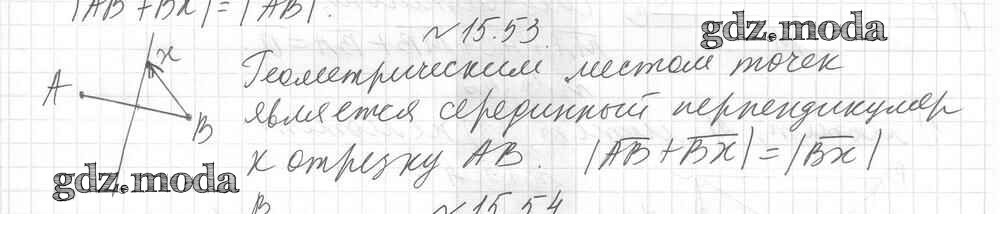 |AB + BX| = |AB|.
N 15.53.
gdz.moda
Геометрическим местом точек
является серединный перпендикуляр
к отрезку AB. |AB + BX| = |BX|
A
X
B
gdz.moda
B
N 15.54